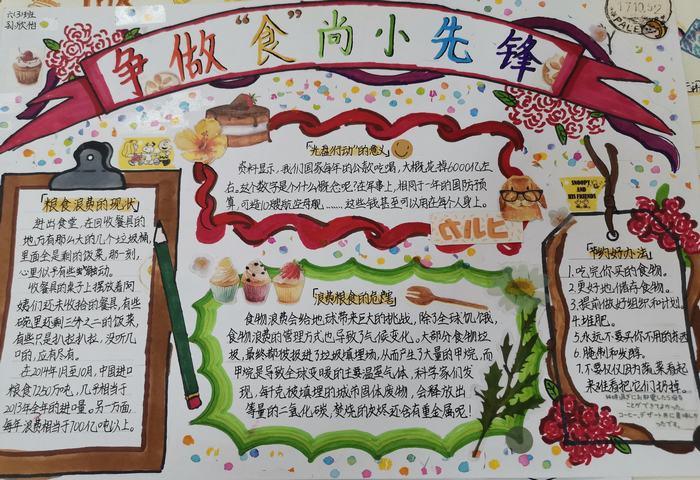 六(3)班
争做“食”尚小先锋
17.10.52
「粮食浪费的现状」
进出食堂，在回收餐具的
地方有那么大的几个垃圾桶，
里面全是剩的饭菜，那一刻，
心里似乎有些触动。
收餐具的桌子上摆放着阿
姨们还未收拾的餐具，有些
碗里还剩三分之二的饭菜，
有些只是扒拉扒拉，没吃几
口的，应有尽有。
在2014年1月至10月，中国进口
粮食7250万吨，几乎相当于
2013年全年的进口量。另一方面，
每年浪费相当于700亿吨以上。
「光盘行动”的意义」
资料显示，我们国家每年的公款吃喝，大概是掉6000亿左
右。这个数字是个什么概念呢？在军事上，相同于一年的国防预
算，可造10艘航空母舰……这些钱甚至可以用在每个人身上。
「浪费粮食的危害」
食物浪费会给地球带来巨大的挑战，除了全球饥饿，
食物浪费的管理方式也导致了气候变化。大部分食物垃
圾，最终都被扔进了垃圾填埋场，从而产生了大量的甲烷，而
甲烷是导致全球变暖的主要温室气体，科学家们发
现，每千克被填埋的城市固体废物，会释放出
等量的二氧化碳，焚烧的灰烬还含有重金属呢！
SNOOPY
AND
HIS FRIENDS
「节约好办法」
1.吃完你买的食物。
2.更好地储存食物。
3.提前做好组织和计划。
4.堆肥。
5.永远不要买你不用的东西
6.腌制和发酵。
7.不要仅仅因为蔬菜看起
来难看把它们扔掉。